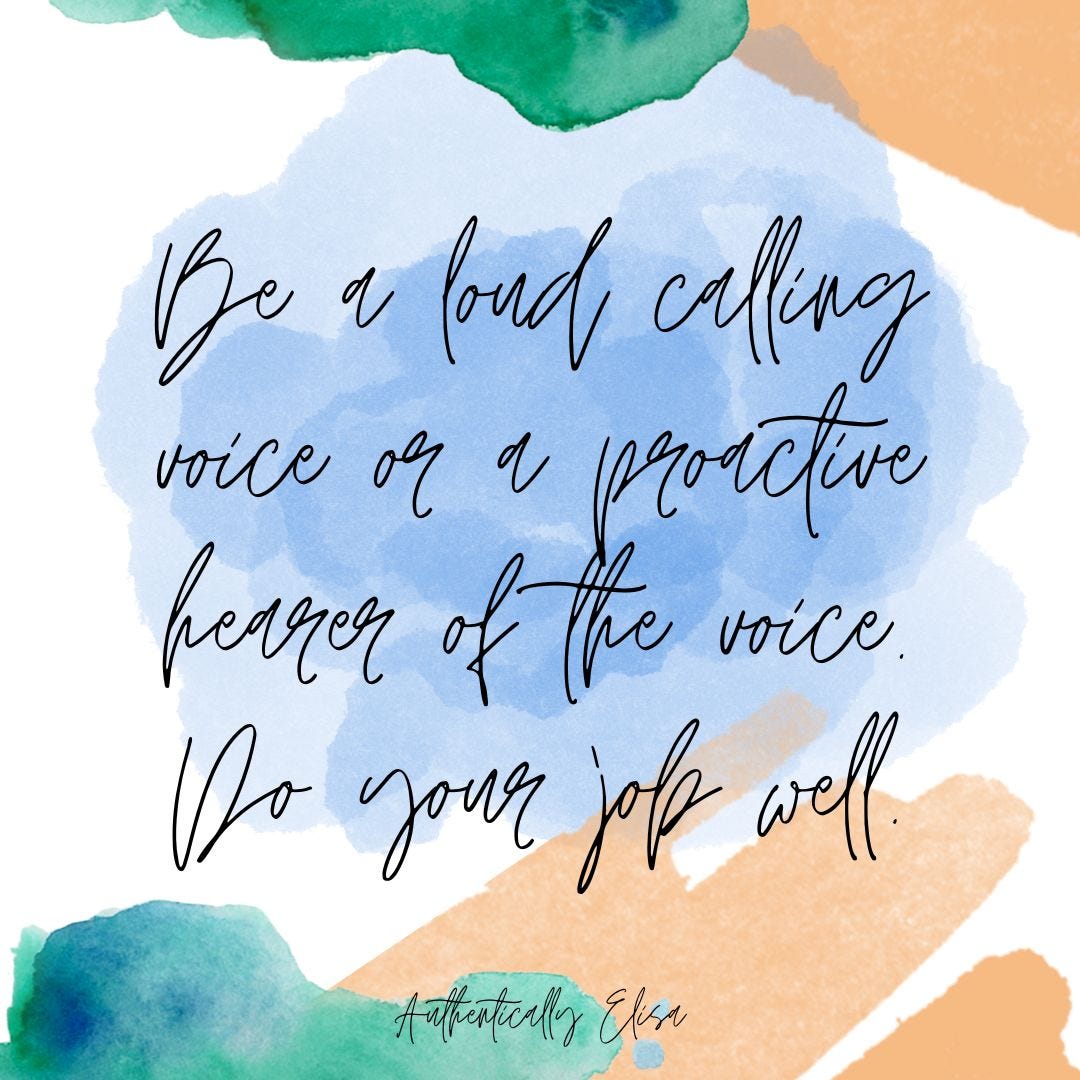 Be a loud calling
voice or a proactive
hearer of the voice.
Do your job well.
Authentically Elisa